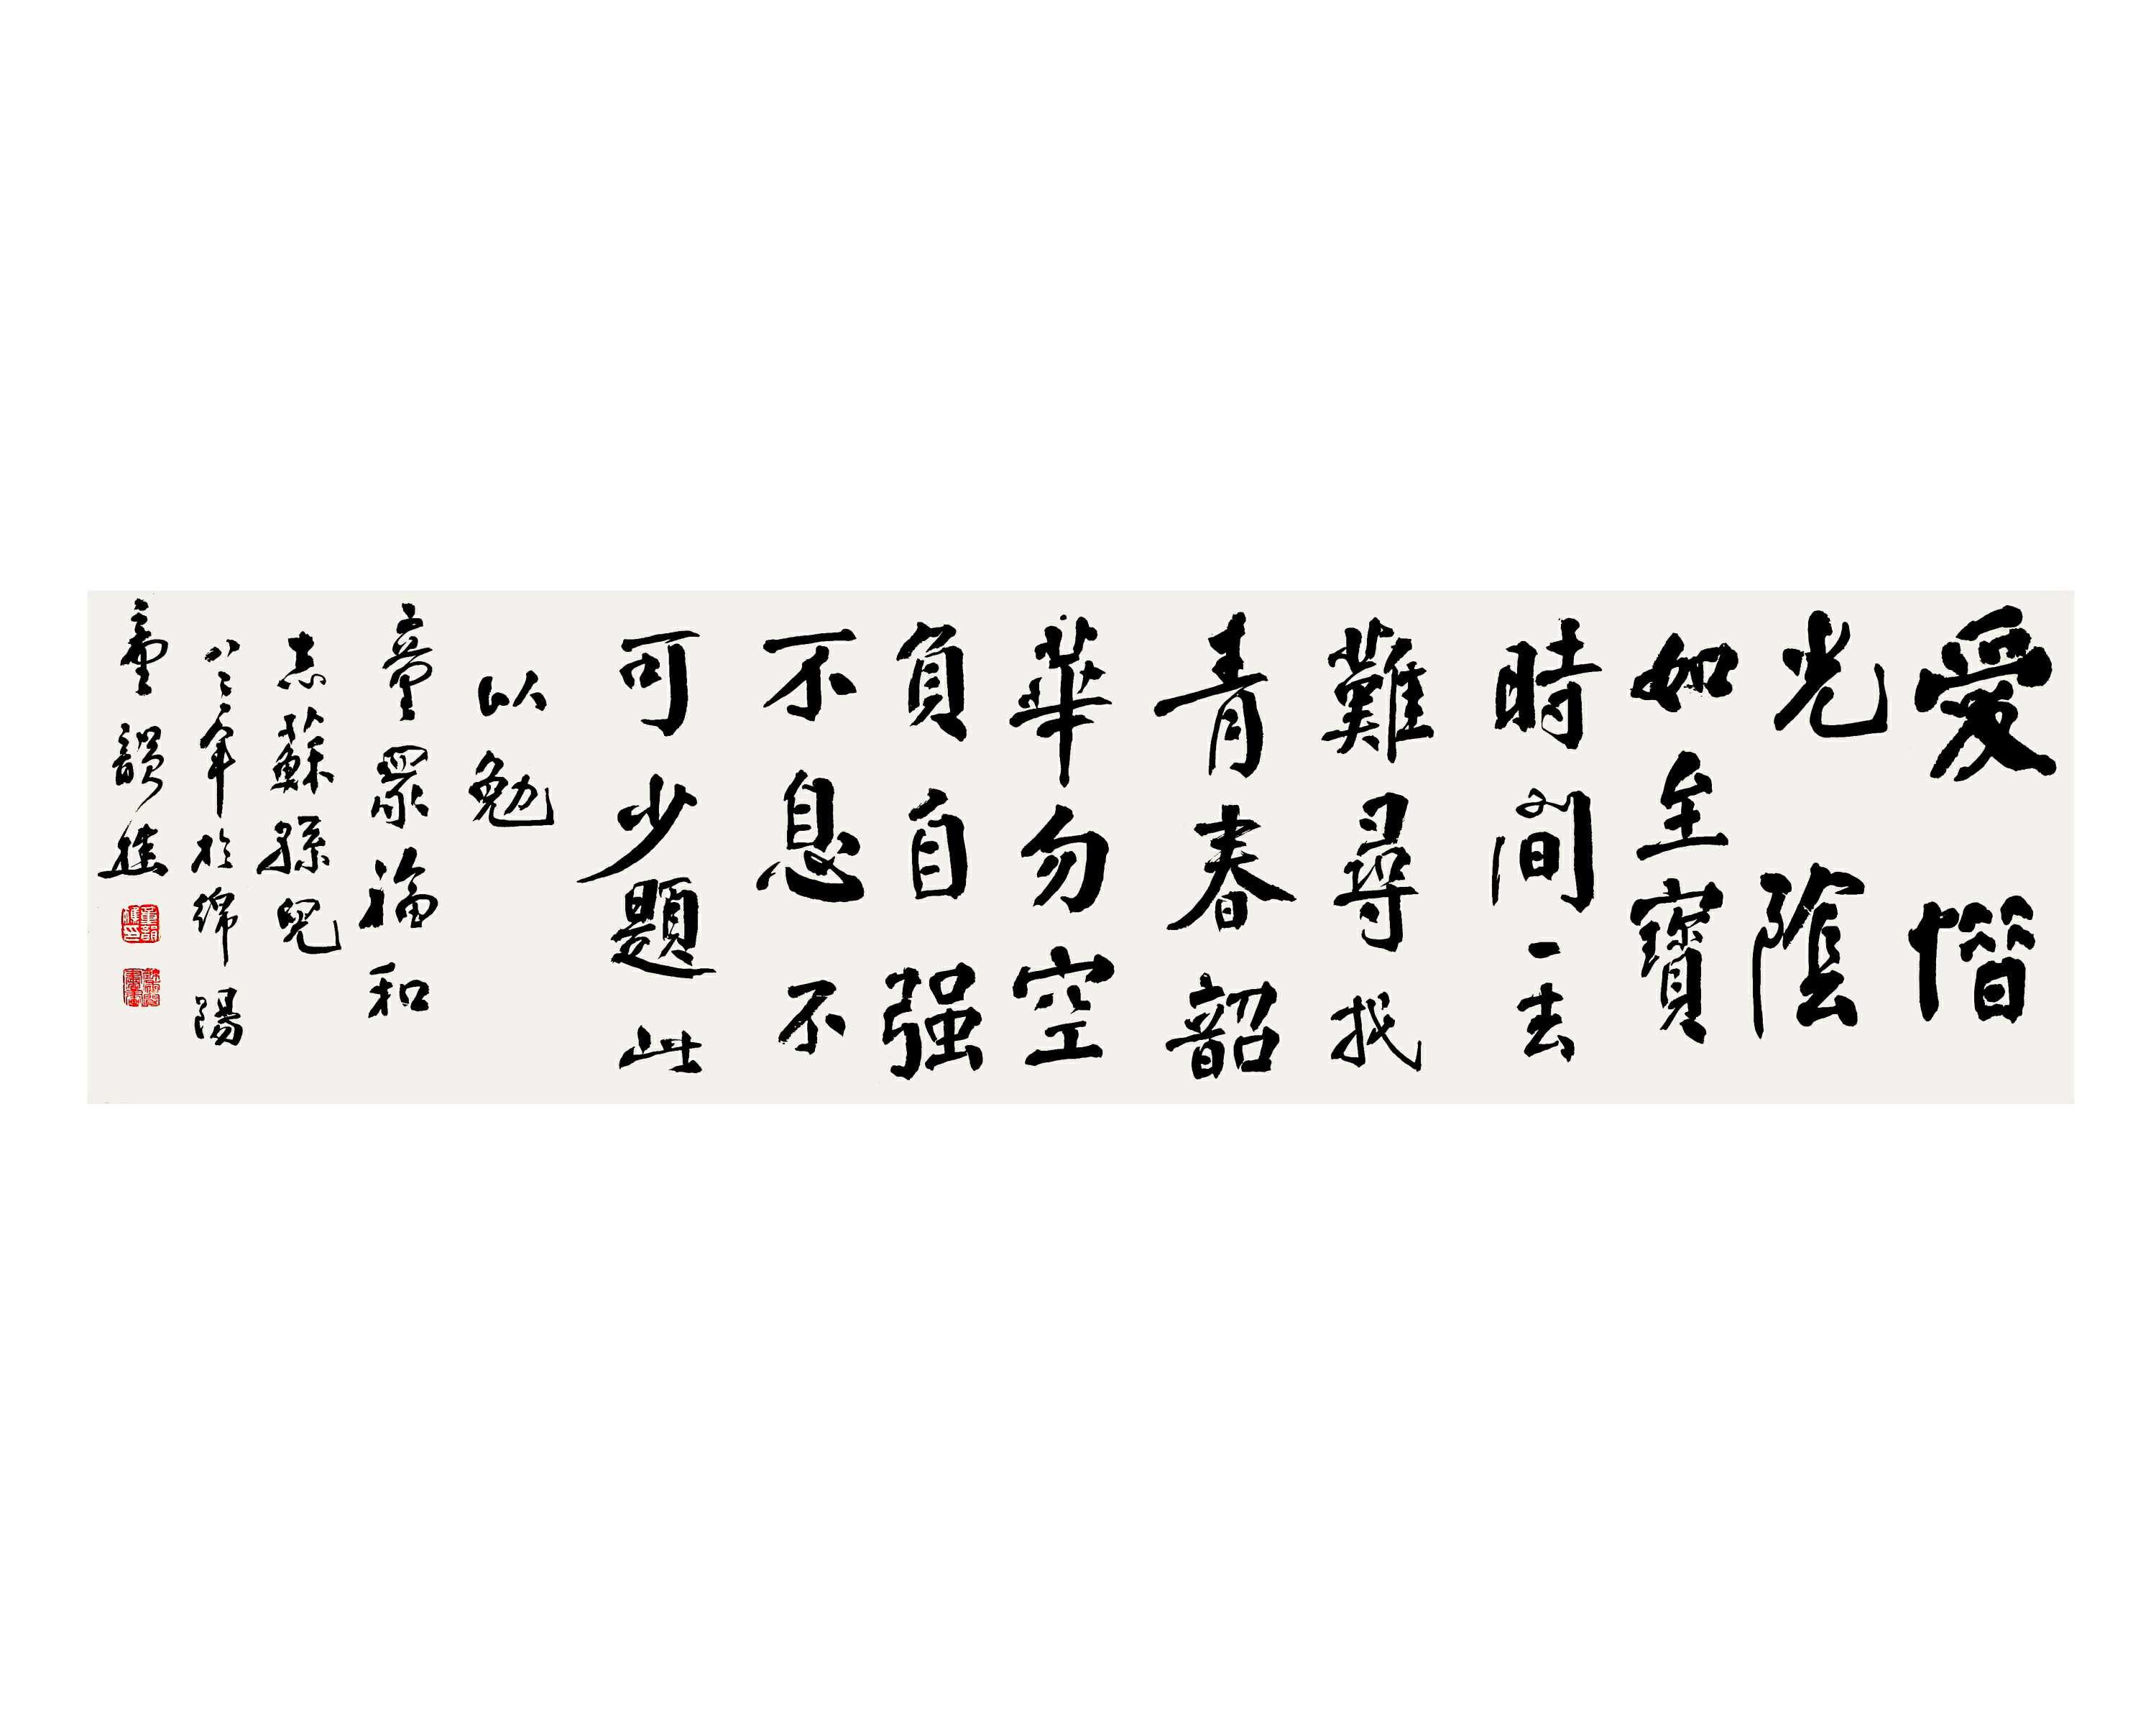 愛惜
光陰
如至寶
時間一去
難尋找
青春韶
華勿空
負自强
不息不
可少題此
以勉
福和
志蘇孫兒
年於綿陽
童韻